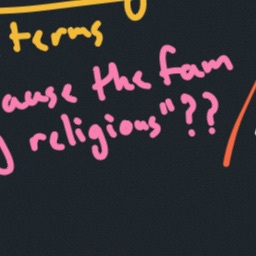 terms
ause the fam
religious"??